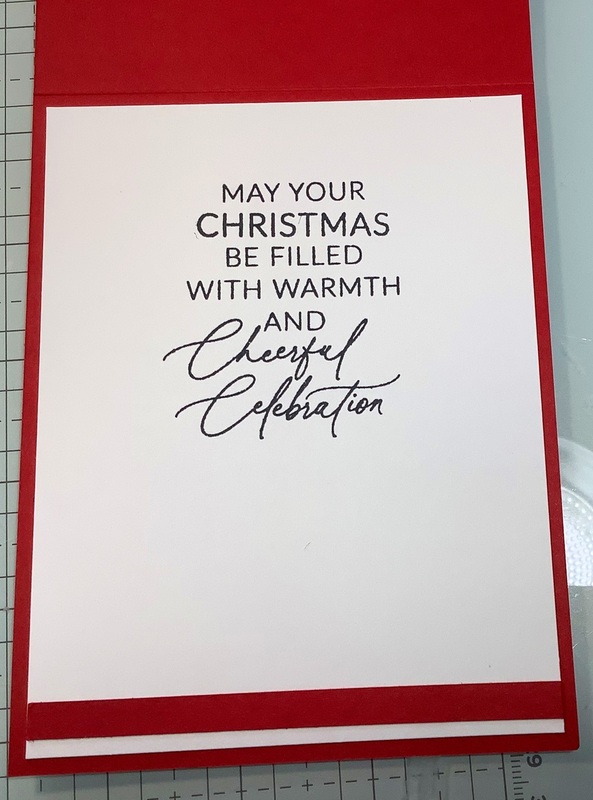 MAY YOUR
CHRISTMAS
BE FILLED
WITH WARMTH
AND
Cheerful
Celebration